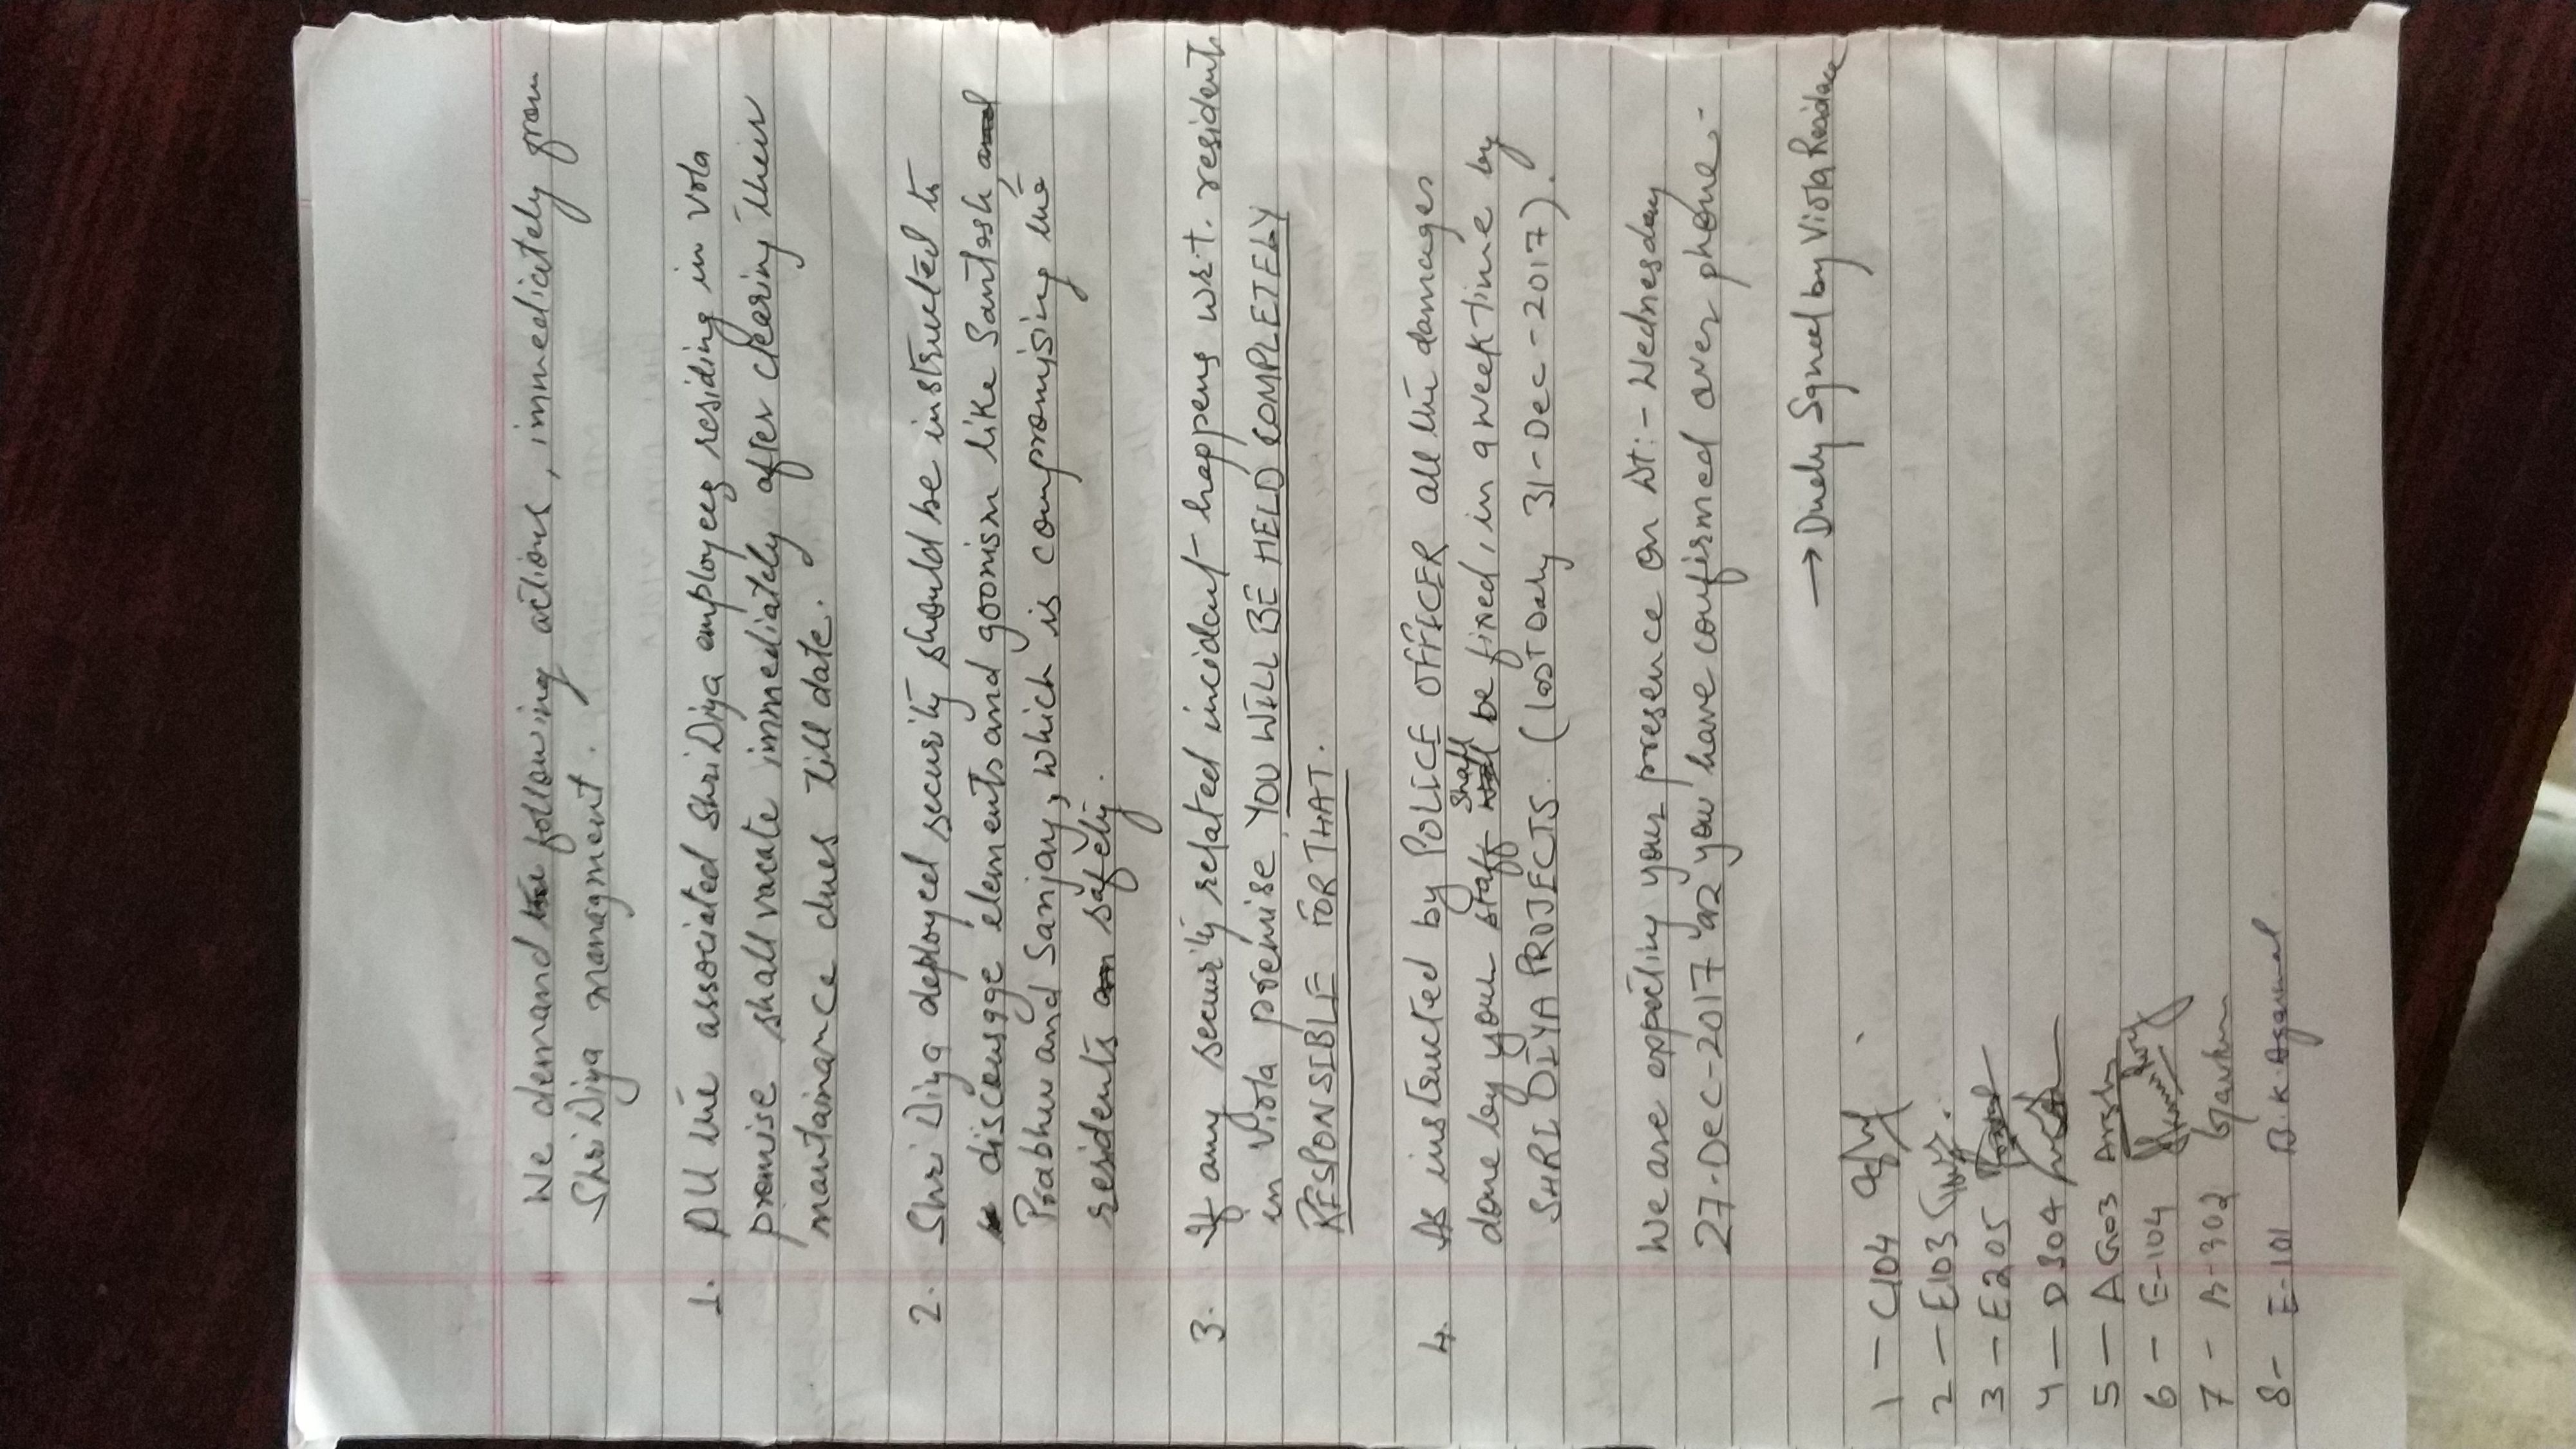 We demand the following actions, immediately from
ShriDiya managment.
1. All the associated ShriDiya employees residing in Vola
promise shall vacate immediately after clearing their
maintainance dues till date.
2. Shri Diya deployed security should be instructed to
discourage elements and goonism like Santosh, and
Prabhu and Sanjay, which is compromising the
residents safety.
3. If any security related incident happens w.r.t. residents
in Viola premise YOU WILL BE HELD COMPLETELY
RESPONSIBLE FOR THAT.
4. As instructed by POLICE OFFICER all the damages
done by your staff shall be fixed, in a week time by
SHRI DIYA PROJECTS. (last Day 31-Dec-2017).
We are expecting your presence on Dt:- Wednesday
27-Dec-2017 as you have confirmed over phone.
→ Duely Signed by Viola Residence
1 - C104
2 - E103
3 - E205
4 - D304
5 - AG03
6 - E-104
7 - B-302
8- E-101 B.K. Agarwal